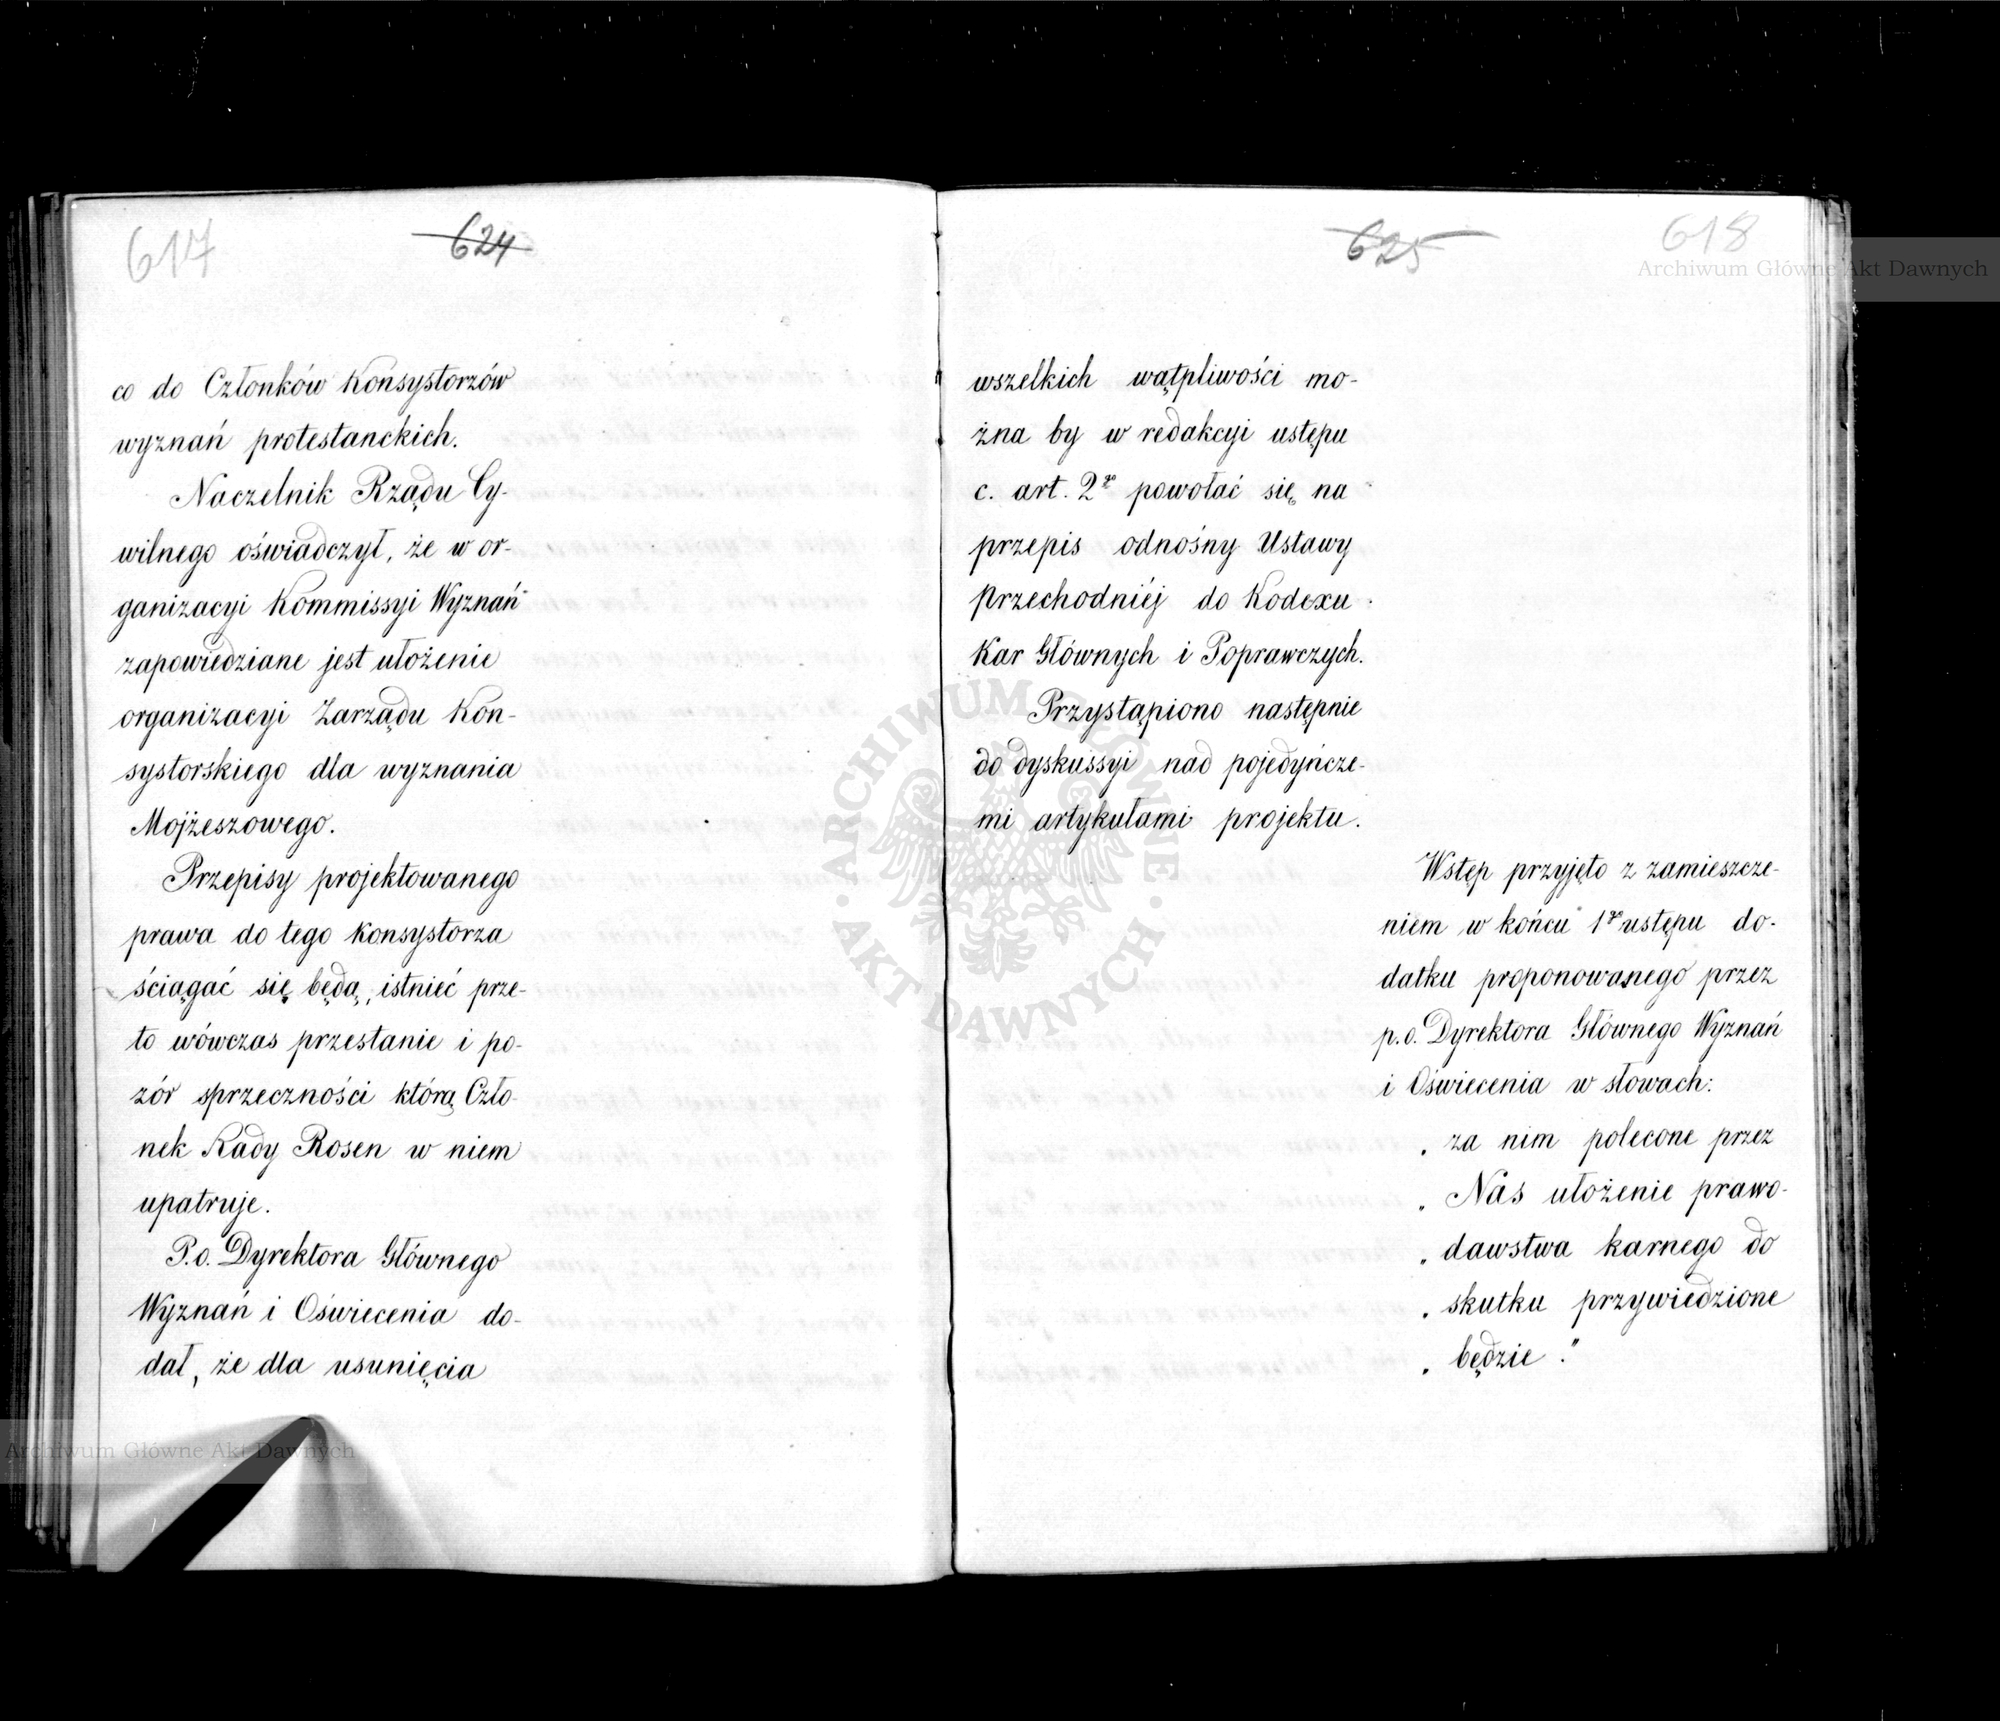 617
624
co do Członków Konsystorzów
wyznań protestanckich.
Naczelnik Rządu Cy-
wilnego oświadczył, że w or-
ganizacyi Kommissyi Wyznań
zapowiedziane jest ułożenie
organizacyi Zarządu Kon-
systorskiego dla wyznania
Mojżeszowego.
Przepisy projektowanego
prawa do tego Konsystorza
ściągać się będą, istnieć prze-
to wówczas przestanie i po-
zór sprzeczności którą Czło-
nek Rady Rosen w niem
upatruje.
P.o. Dyrektora Głównego
Wyznań i Oświecenia do-
dał, że dla usunięcia
625
618
wszelkich wątpliwości mo-
żna by w redakcyi ustępu
c. art. 2go powołać się na
przepis odnośny Ustawy
przechodniéj do Kodexu
Kar Głównych i Poprawczych.
Przystąpiono następnie
do dyskussyi nad pojedyńcze-
mi artykułami projektu.
Wstęp przyjęto z zamieszcze-
niem w końcu 1go ustępu do-
datku proponowanego przez
p.o. Dyrektora Głównego Wyznań
i Oświecenia w słowach:
„ za nim polecone przez
„ Nas ułożenie prawo-
„ dawstwa karnego do
„ skutku przywiedzione
„ będzie."
Archiwum Główne Akt Dawnych
ARCHIWUM GŁÓWNE · AKT DAWNYCH ·
Archiwum Główne Akt Dawnych